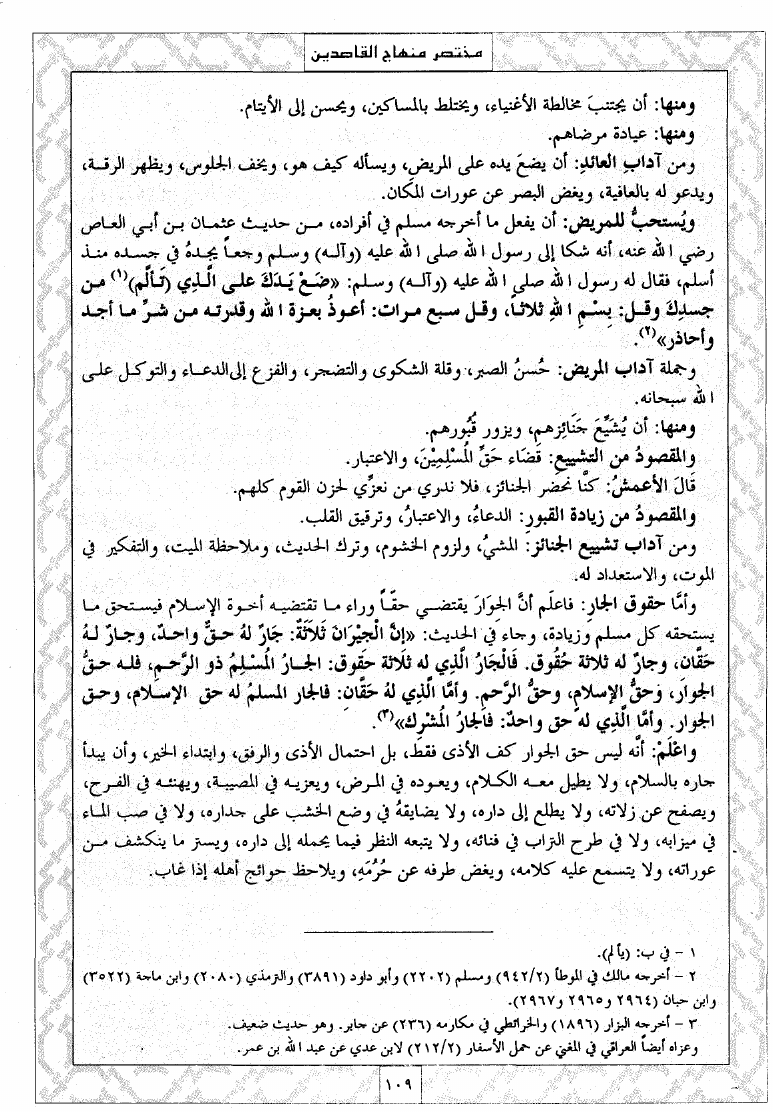 مختصر منهاج القاصدين
ومنها: أن يجتنبَ مخالطة الأغنياء، ويختلط بالمساكين، ويحسن إلى الأيتام.
ومنها: عيادة مرضاهم.
ومن آدابِ العائدِ: أن يضعَ يده على المريض، ويسأله كيف هو، ويخف الجلوس، ويظهر الرقة،
ويدعو له بالعافية، ويغض البصر عن عورات المكان.
ويُستحبُّ للمريض: أن يفعل ما أخرجه مسلم في أفراده، مـن حديث عثمـان بـن أبي العـاص
رضي الله عنه، أنه شكا إلى رسول الله صلى الله عليه (وآلـه) وسلم وجعـاً يجـدهُ في جسـده منـذ
أسلم، فقال له رسول الله صلى الله عليه (وآلـه) وسلم: «ضَعْ يَـدَكَ على الَّـذِي (تَـألَّم)(١) مـن
جسدِكَ وقـل: بِسْـمِ اللهِ ثلاثـاً، وقـل سبع مـرات: أعـوذُ بعـزة الله وقدرتـه مـن شـرِّ مـا أجـد
وأحاذر»(٢).
وجملة آداب المريض: حُسنُ الصبر، وقلة الشكوى والتضجر، والفزع إلى الدعـاء والتوكـل علـى
الله سبحانه.
ومنها: أن يُشَيِّعَ جَنَائِزهم، ويزور قُبُورهم.
والمقصودُ من التشييعِ: قَضَاء حَقِّ المُسْلِمِيْنَ، والاعتبار.
قَالَ الأعمشُ: كنَّا نحضر الجنائز، فلا ندري من نعزِّي لحزن القوم كلهم.
والمقصودُ من زيادة القبورِ: الدعاءُ، والاعتبارُ، وترقيق القلب.
ومن آداب تشييع الجنائز: المشيُ، ولزوم الخشوم، وترك الحديث، وملاحظة الميت، والتفكير في
الموت، والاستعداد له.
وأمَّا حقوق الجارِ: فاعلَم أنَّ الجِوَارَ يقتضـي حقّـاً وراء مـا تقتضيـه أخـوة الإسـلام فيستحق مـا
يستحقه كل مسلم وزيادة، وجاء في الحديث: «إنَّ الْجِيْرَانَ ثَلَاثَةٌ: جَارٌ لهُ حـقٌّ واحـدٌ، وجـارٌ لـهُ
حَقَّان، وجارٌ له ثلاثة حُقُوق. فَالْجَارُ الَّذي له ثلاثة حقوق: الجـارُ المُسْلِمُ ذو الرَّحـم، فلـه حـقُّ
الجوار، وَحقُّ الإسلام، وحقُّ الرَّحم. وأمَّا الَّذي لهُ حَقَّان: فالجار المسلمُ له حق الإسلام، وحق
الجوار. وأمَّا الَّذي له حق واحدٌ: فَالجارُ المُشْرِك»(٣).
واعْلَمْ: أنَّه ليس حق الجوار كف الأذى فقط، بل احتمال الأذى والرفق، وابتداء الخير، وأن يبدأ
جاره بالسلام، ولا يطيل معـه الكـلام، ويعـوده في المـرض، ويعزيـه في المصيبـة، ويهنئـه في الفـرح،
ويصفح عن زلاته، ولا يطلع إلى داره، ولا يضايقهُ في وضع الخشب على جداره، ولا في صب المـاء
في ميزابه، ولا في طرح التراب في فنائه، ولا يتبعه النظر فيما يحمله إلى داره، ويستر ما ينكشف مـن
عوراته، ولا يتسمع عليه كلامه، ويغض طرفه عن حُرُمَهِ، ويلاحظ حوائج أهله إذا غاب.
١ - في ب: (يألم).
٢ - أخرجه مالك في الموطأ (٩٤٢/٢) ومسلم (٢٢٠٢) وأبو داود (٣٨٩١) والترمذي (٢٠٨٠) وابن ماجة (٣٥٢٢)
وابن حبان (٢٩٦٤ و٢٩٦٥ و٢٩٦٧).
٣ - أخرجه البزار (١٨٩٦) والخرائطي في مكارمه (٢٣٦) عن جابر. وهو حديث ضعيف.
وعزاه أيضاً العراقي في المغني عن حمل الأسفار (٢١٢/٢) لابن عدي عن عبد الله بن عمر.
١٠٩